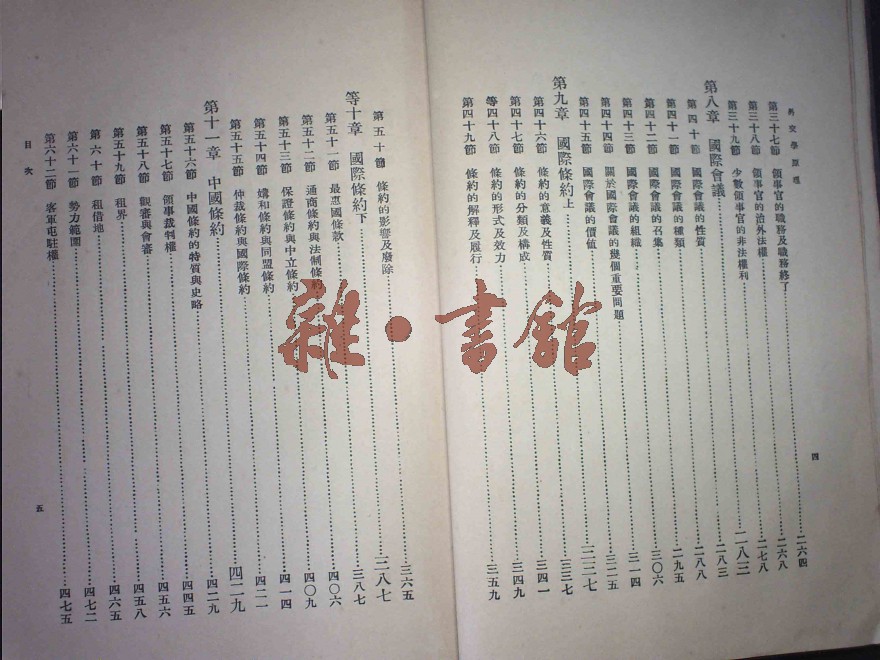 外交學原理
第三十七節 領事官的職務及職務終了………二六四
第三十八節 領事官的治外法權………二六八
第三十九節 少數領事官的非法權利………二七八
第八章 國際會議………二八三
第四十節 國際會議的性質………二八三
第四十一節 國際會議的種類………二八八
第四十二節 國際會議的召集………二九五
第四十三節 國際會議的組織………三〇六
第四十四節 關於國際會議的幾個重要問題………三一四
第四十五節 國際會議的價値………三二五
第九章 國際條約上………三三七
第四十六節 條約的意義及性質………三三七
第四十七節 條約的分類及構成………三四一
等四十八節 條約的形式及效力………三四九
第四十九節 條約的解釋及履行………三五九
四
第五十節 條約的影響及廢除………三六五
等十章 國際條約下………三八七
第五十一節 最惠國條款………三八七
第五十二節 通商條約與法制條約………四〇六
第五十三節 保證條約與中立條約………四〇九
第五十四節 媾和條約與同盟條約………四一四
第五十五節 仲裁條約與國際條約………四二一
第十一章 中國條約………四二九
第五十六節 中國條約的特質與史略………四二九
第五十七節 領事裁判權………四四五
第五十八節 觀審與會審………四五六
第五十九節 租界………四五八
第六十節 租借地………四六五
第六十一節 勢力範圍………四七二
第六十二節 客軍屯駐權………四七五
目次
五
雜·書館